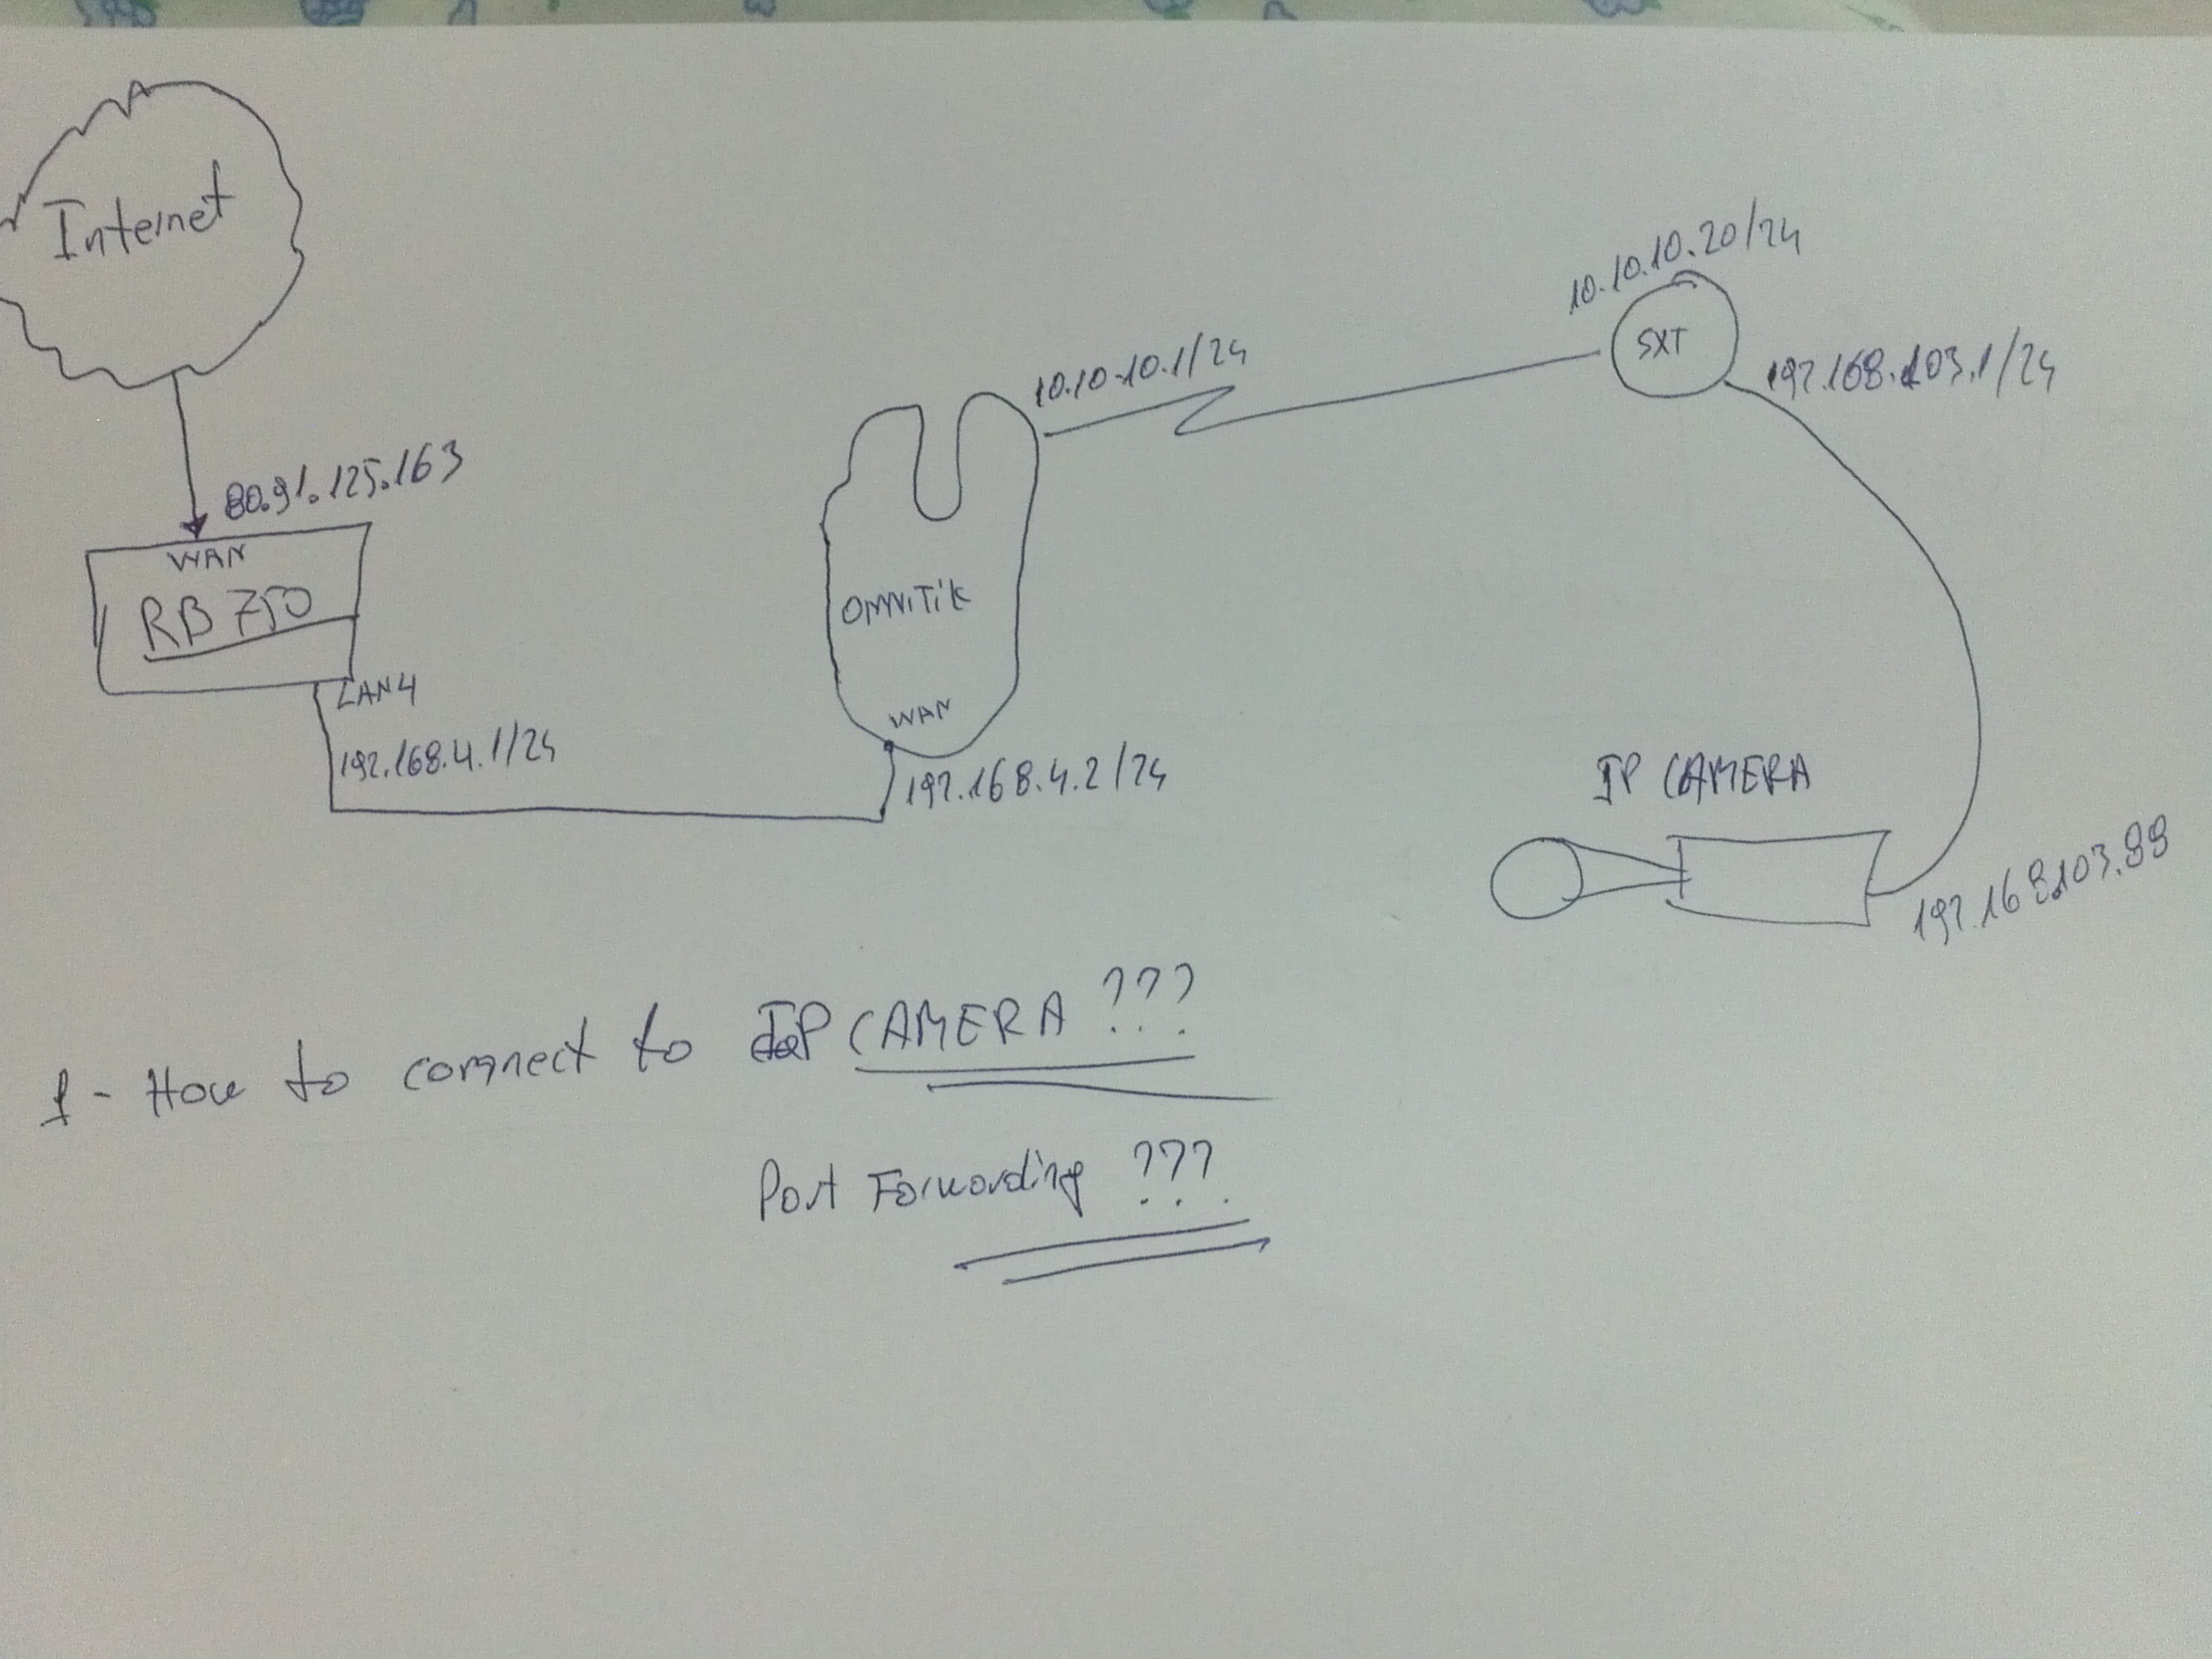 Internet
80.91.125.163
WAN
RB 750
LAN4
192.168.4.1/24
10.10.10.1/24
OMNITIK
WAN
192.168.4.2/24
10.10.10.20/24
SXT
192.168.103.1/24
IP CAMERA
192.168.103.99
1 - How to connect to IP CAMERA ???
Port Forwarding ???